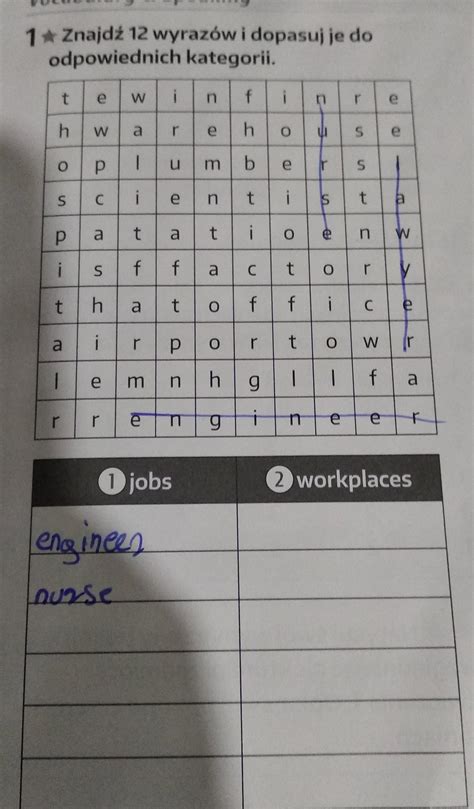 1 ★ Znajdź 12 wyrazów i dopasuj je do
odpowiednich kategorii.
t e w i n f i n r e
h w a r e h o u s e
o p l u m b e r s l
s c i e n t i s t a
p a t a t i o e n w
i s f f a c t o r y
t h a t o f f i c e
a i r p o r t o w r
l e m n h g l l f a
r r e n g i n e e r
1 jobs
2 workplaces
engineer
nurse